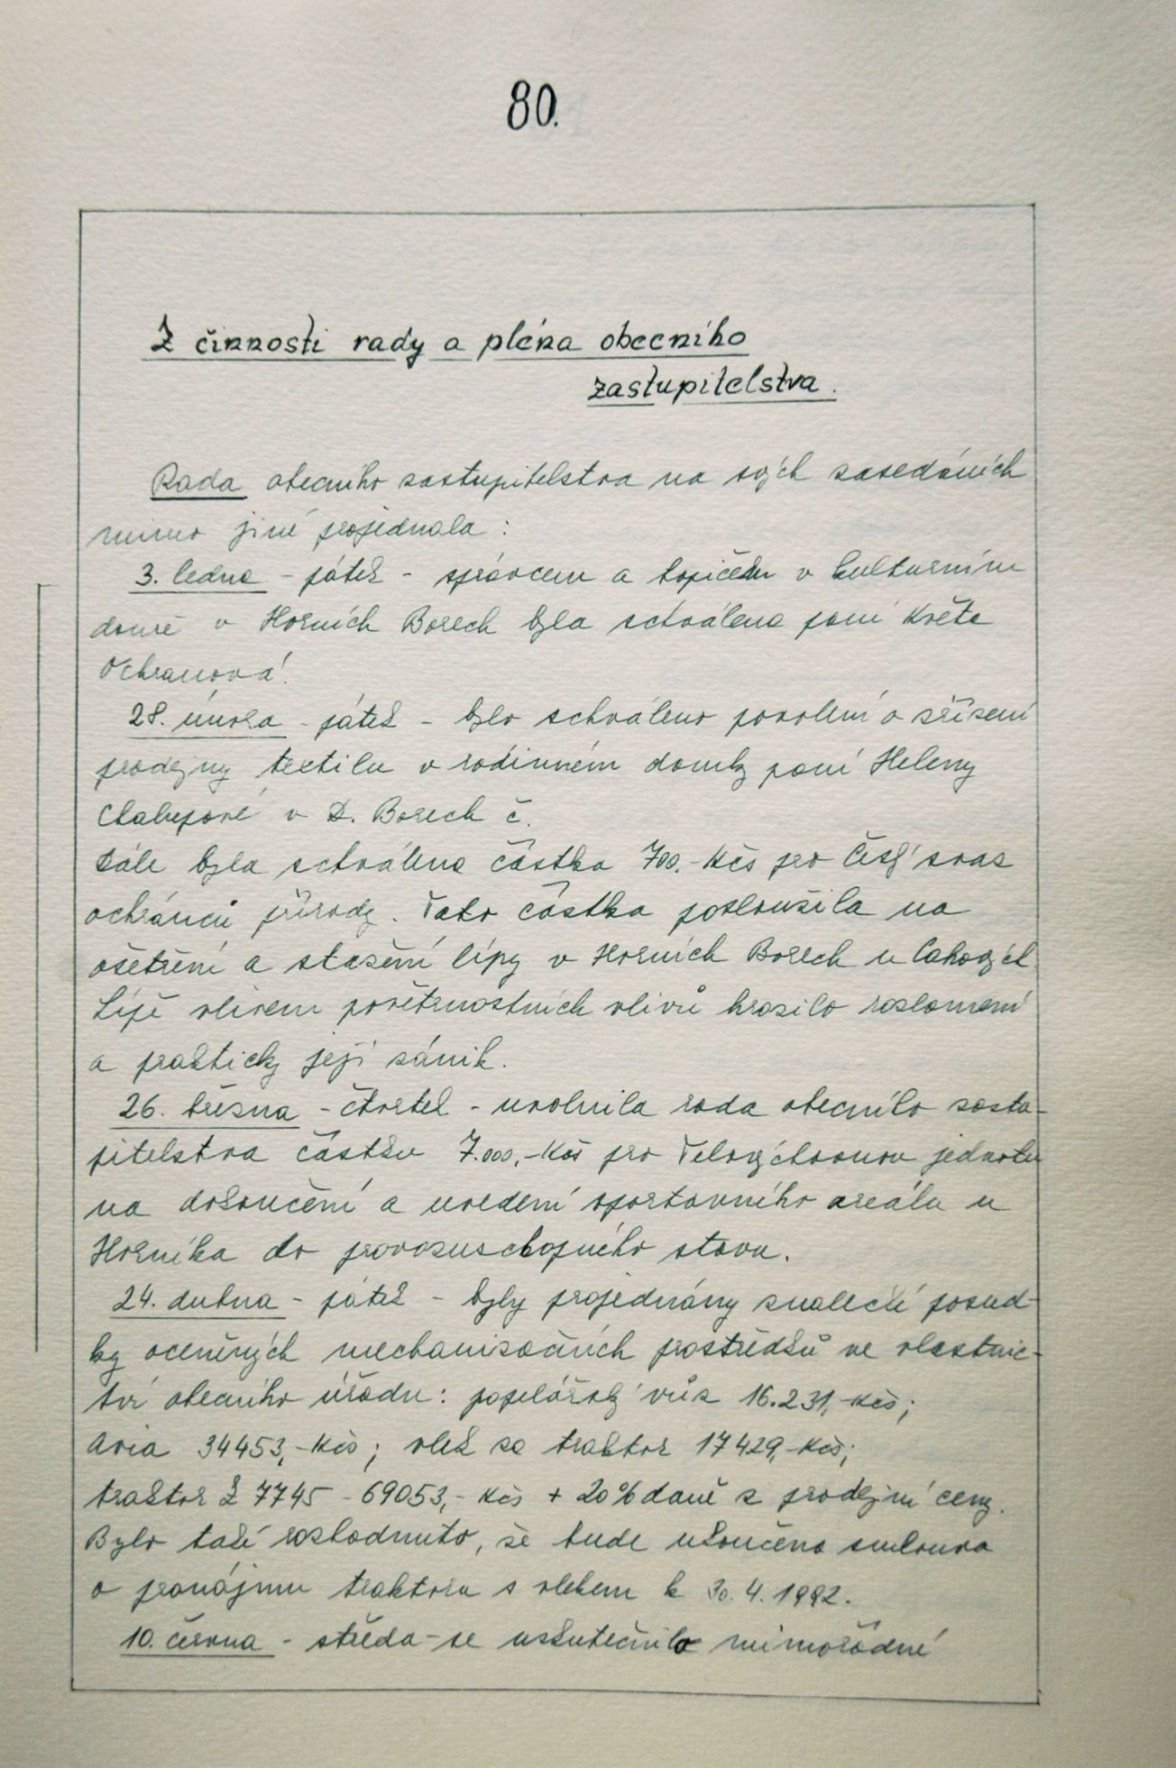 80.
Z činnosti rady a pléna obecního
zastupitelstva.
Rada obecního zastupitelstva na svých zasedáních
mimo jiné projednala:
3. ledna - pátek - správcem a topičem v kulturním
domě v Horních Borech byla schválena paní Květa
Ochranová.
28. února - pátek - bylo schváleno povolení o zřízení
prodejny textilu v rodinném domky paní Heleny
Chalupové v D. Borech č.
Dále byla schválena částka 700.-Kčs pro Český svaz
ochránců přírody. Tato částka posloužila na
ošetření a stažení lípy v Horních Borech u
Lípě vlivem povětrnostních vlivů hrozilo rozlomení
a prakticky její zánik.
26. března - čtvrtek - uvolnila rada obecního zastu-
pitelstva částku 7.000,-Kčs pro Tělovýchovnou jednotu
na dokončení a uvedení sportovního areálu u
Horníka do provozuschopného stavu.
24. dubna - pátek - byly projednány znalecké posud-
ky oceněných mechanizačních prostředků ve vlastnic-
tví obecního úřadu: popelářský vůz 16.231,-Kčs;
Avia 34453,-Kčs; vlek za traktor 17429,-Kčs;
traktor Z 7745 - 69053,- Kčs + 20% daně z prodejní ceny.
Bylo také rozhodnuto, že bude ukončena smlouva
o pronájmu traktoru s vlekem k 30.4.1992.
10. června - středa - se uskutečnilo mimořádné